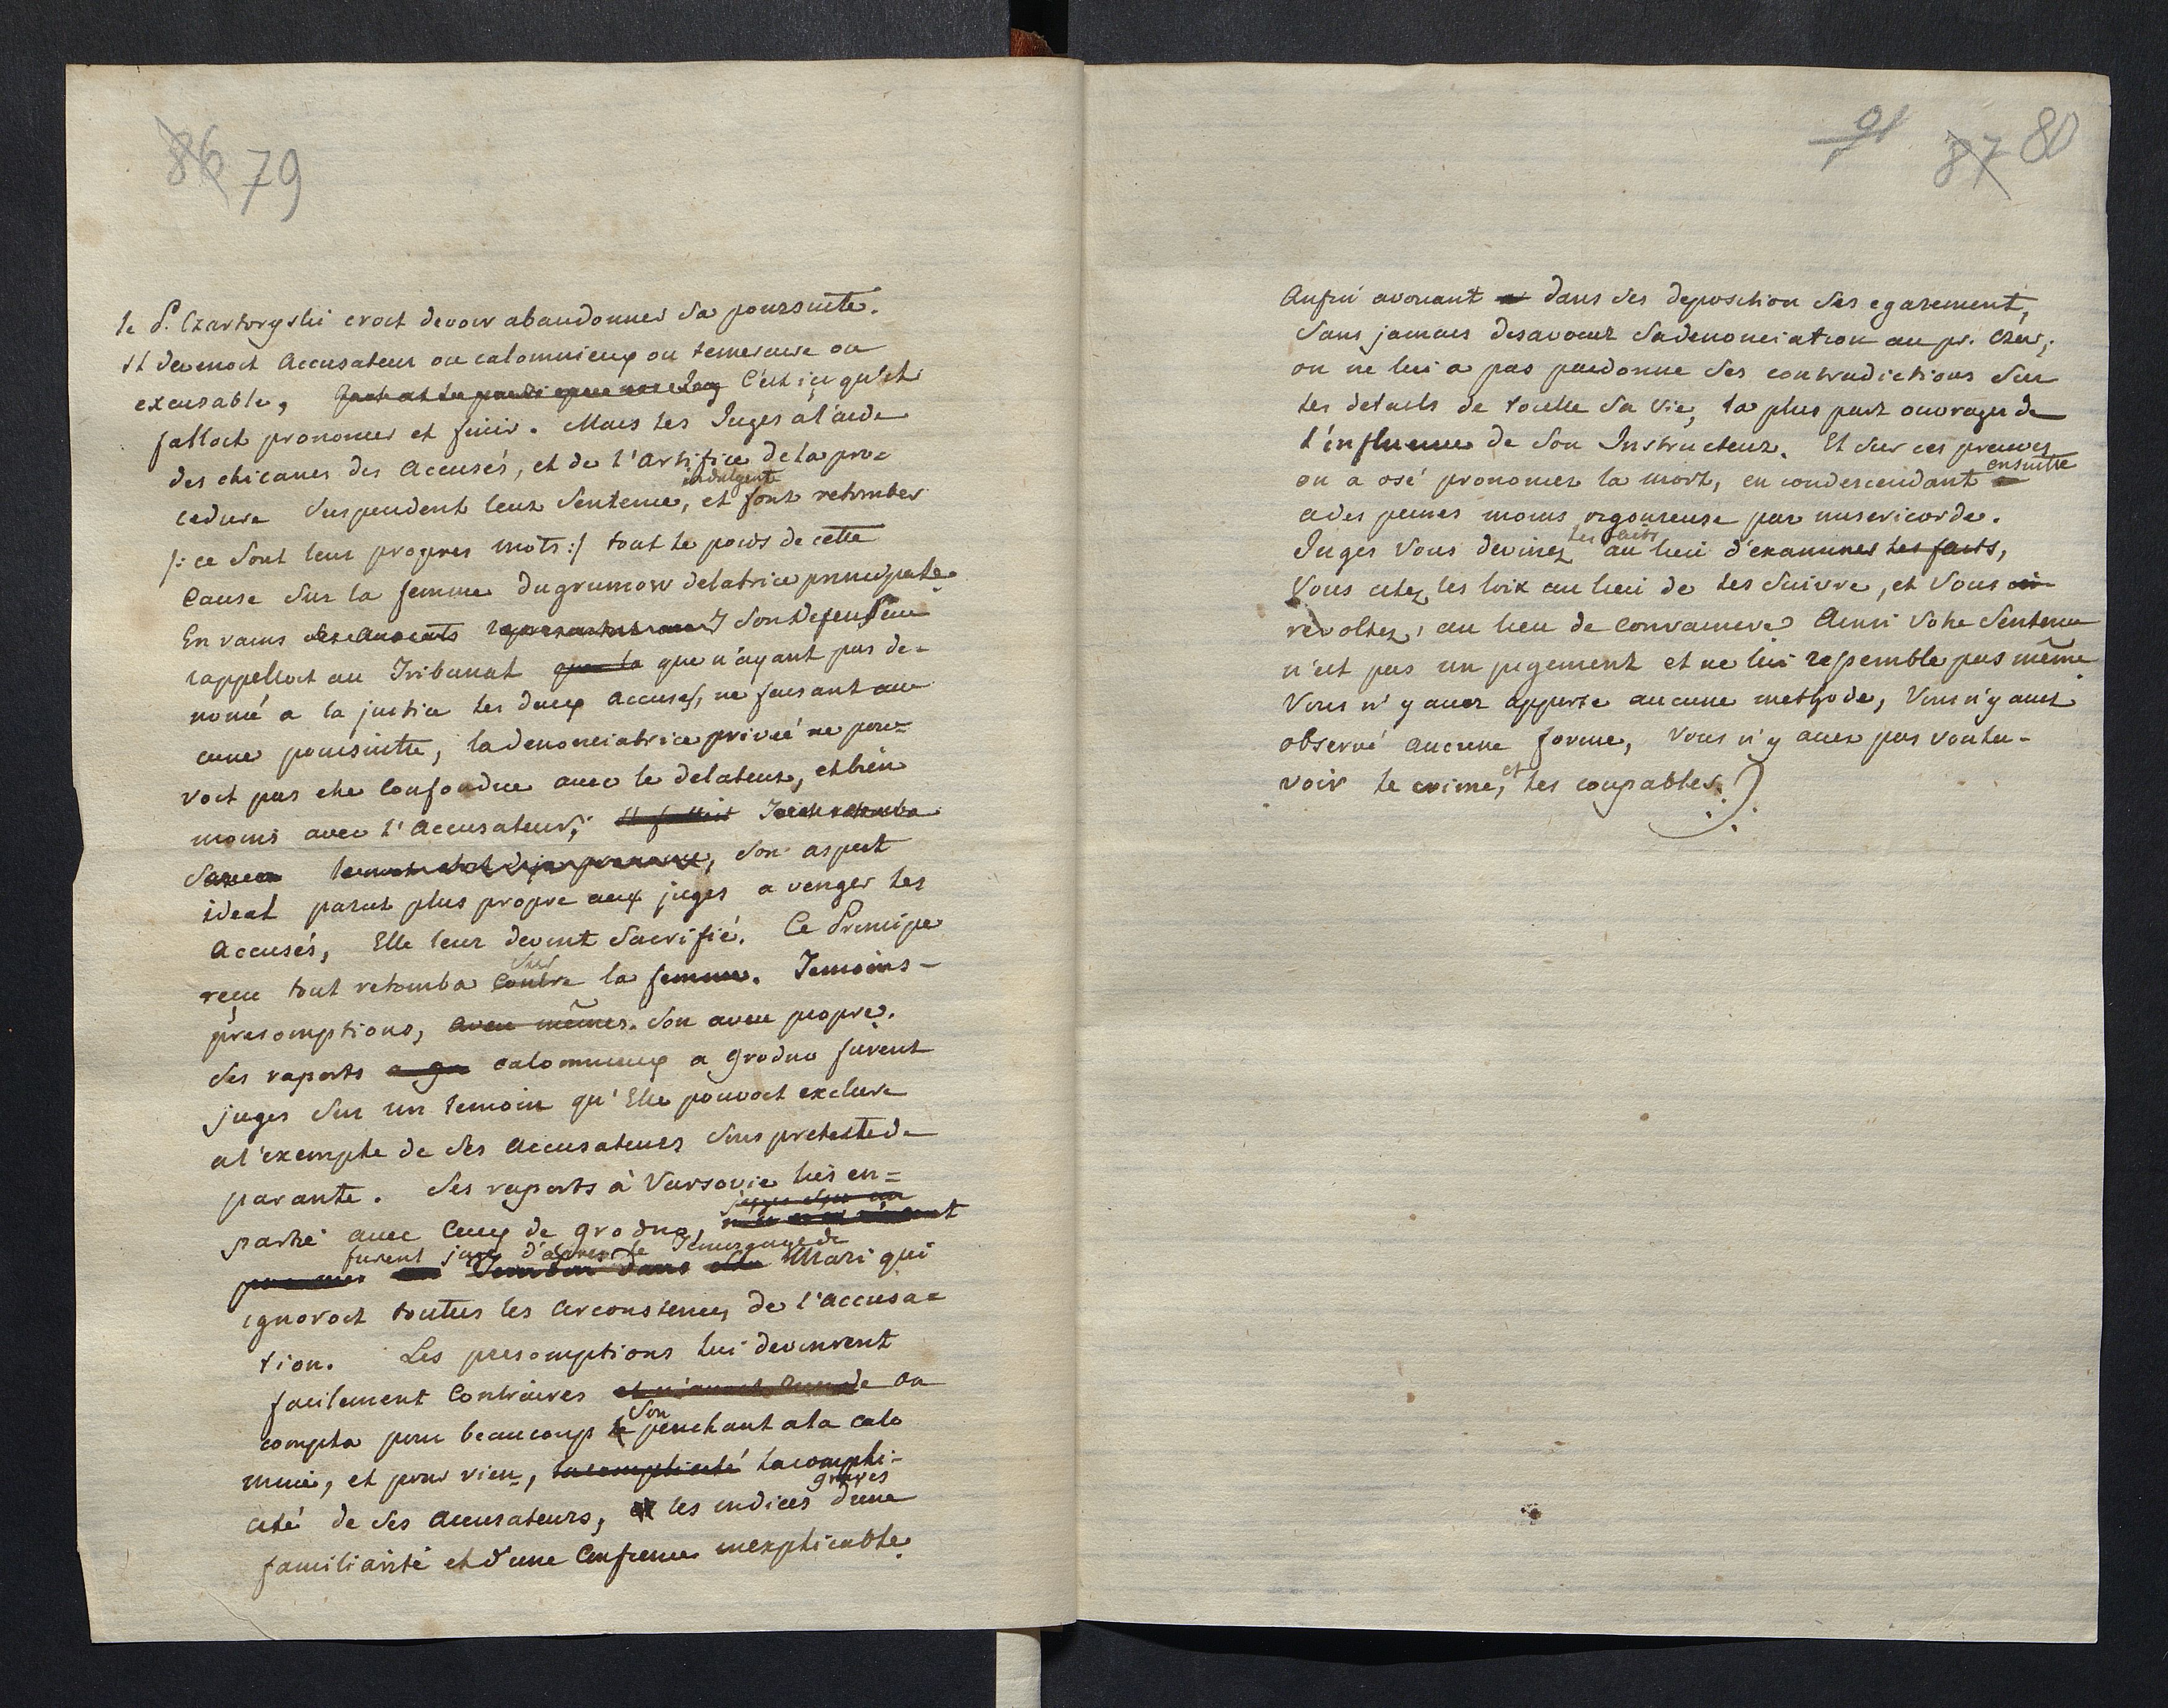 86 79
le P. Czartoryski croit devoir abandonner sa poursuite.
Il devenoit Accusateur ou calomnieux ou temeraire ou
excusable, C'est içi qu'il
falloit prononcer et finir. Mais les Juges a l'aide
des chicanes des Accusés, et de l'Artifice de la pro=
indulgente
cedure suspendent leur sentence, et font retomber
/: ce sont leur propres mots :/ tout le poids de cette
cause sur la femme Dugrumow delatrice principale.
En vains ses Avocats son Defenseur
rappelloit au Tribunal que la que n'ayant pas de=
noncé a la justice les deux accusés, ne faisant au
cune poursuitte, la denonciatrice privée ne pou=
voit pas etre confondue avec le delateur, et bien
moins avec l'Accusateur, Il falloit
son aspect
ideal parut plus propre aux juges a venger les
Accusés, Elle leur devint sacrifié. Ce Principe
sur
reçu tout retomba contre la femme. Temoins-
présomptions, aveu mêmes. son aveu propre.
ses raports a gro calomnieux a grodno furent
juges sur un temoin qu'Elle pouvoit exclure
a l'exemple de ses Accusateurs sous pretexte de
parante. Ses raports à Varsovie liés en=
partie avec ceux de grodno,
furent jugés d'apres le Temoignage de
Mari qui
ignoroit touttes les circonstences de l'accusa=
tion. Les presomptions lui devinrent
facilement contraires on
son
compta pour beaucoup le penchant a la calo
mnie, et pour rien, la complicité la compli-
graves
cité de ses accusateurs, et les indices d'une
familiarité et d'une confience inexplicable.
91 87 80
Anfin avouant dans ses deposition ses egarement,
sans jamais desavouer sa denonciation au pr. Czar;
on ne lui a pas pardonne ses contradictions sur
les details de toutte sa vie, la plus part ouvrages de
l'influence de son Instructeur. Et sur ces preuves
ensuitte
on a osé prononcer la mort, en condescendant
a des peines moins rigoureuse par misericorde.
les faits
Juges vous devinez au lieu d'examiner les faits,
vous citez les loix au lieu de les suivre, et vous
revoltez, au lieu de convaincre. Ainsi votre sentence
n'est pas un jugement et ne lui ressemble pas même.
Vous n'y avez apporte aucune methode, Vous n'y avez
observé aucune forme, vous n'y avez pas voulu-
et
voir le crime, les coupables.